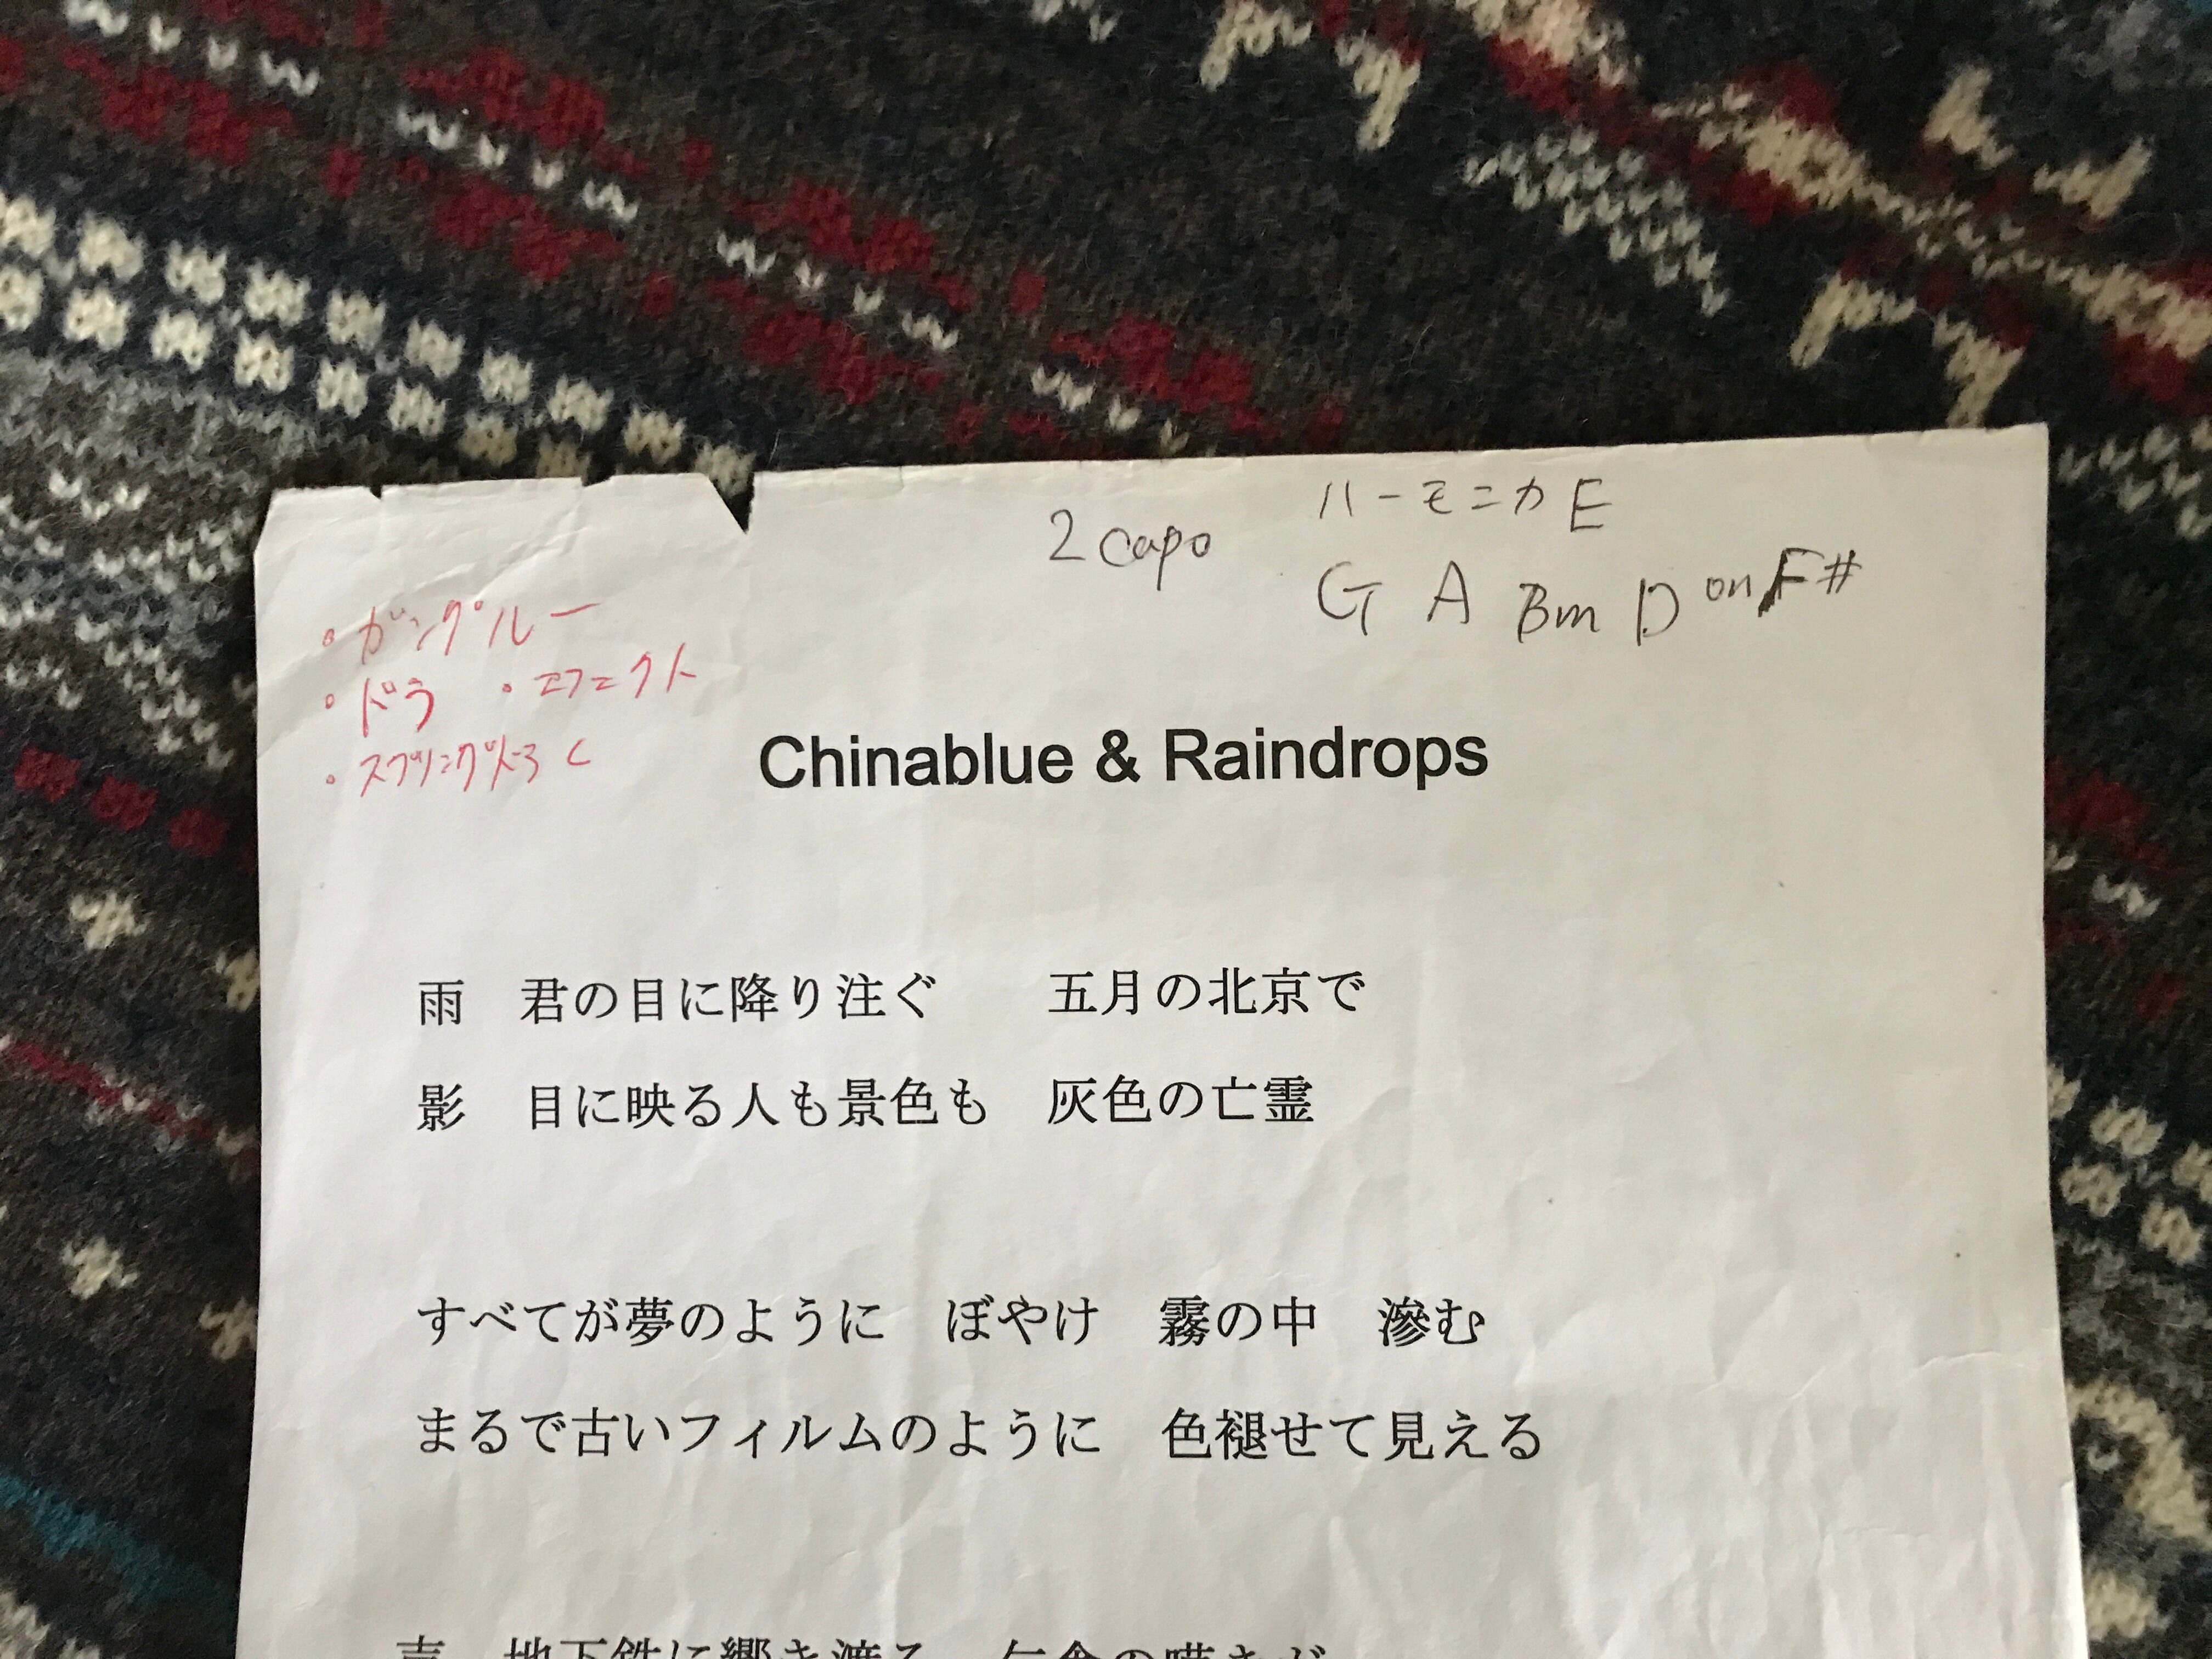 2 capo
ハーモニカ E
G A Bm D on F#
・ガングルー
・ドラ ・エフェクト
・スプリング
Chinablue & Raindrops
雨　君の目に降り注ぐ　　五月の北京で
影　目に映る人も景色も　灰色の亡霊
すべてが夢のように　ぼやけ　霧の中　滲む
まるで古いフィルムのように　色褪せて見える
地下鉄に響き渡る